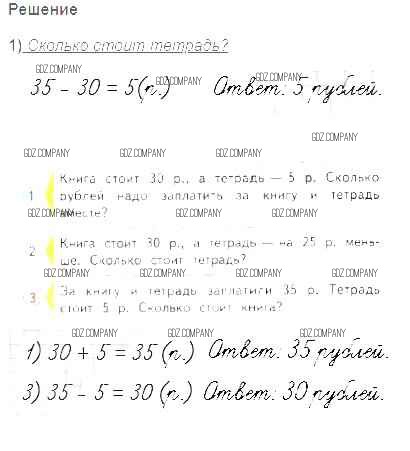 Решение
1) Сколько стоит тетрадь?
GDZ.COMPANY
GDZ.COMPANY
GDZ.COMPANY
35 - 30 = 5(р.) Ответ: 5 рублей.
GDZ.COMPANY
GDZ.COMPANY GDZ.COMPANY GDZ.COMPANY GDZ.COMPANY
1 Книга стоит 30 р., а тетрадь — 5 р. Сколько
рублей надо заплатить за книгу и тетрадь
вместе?
GDZ.COMPANY GDZ.COMPANY GDZ.COMPANY
2 Книга стоит 30 р., а тетрадь — на 25 р. мень-
ше. Сколько стоит тетрадь?
GDZ.COMPANY GDZ.COMPANY GDZ.COMPANY GDZ.COMPANY
3 За книгу и тетрадь заплатили 35 р. Тетрадь
стоит 5 р. Сколько стоит книга?
GDZ.COMPANY GDZ.COMPANY GDZ.COMPANY
1) 30 + 5 = 35 (р.) Ответ: 35 рублей.
GDZ.COMPANY GDZ.COMPANY GDZ.COMPANY GDZ.COMPANY
3) 35 - 5 = 30 (р.) Ответ: 30 рублей.